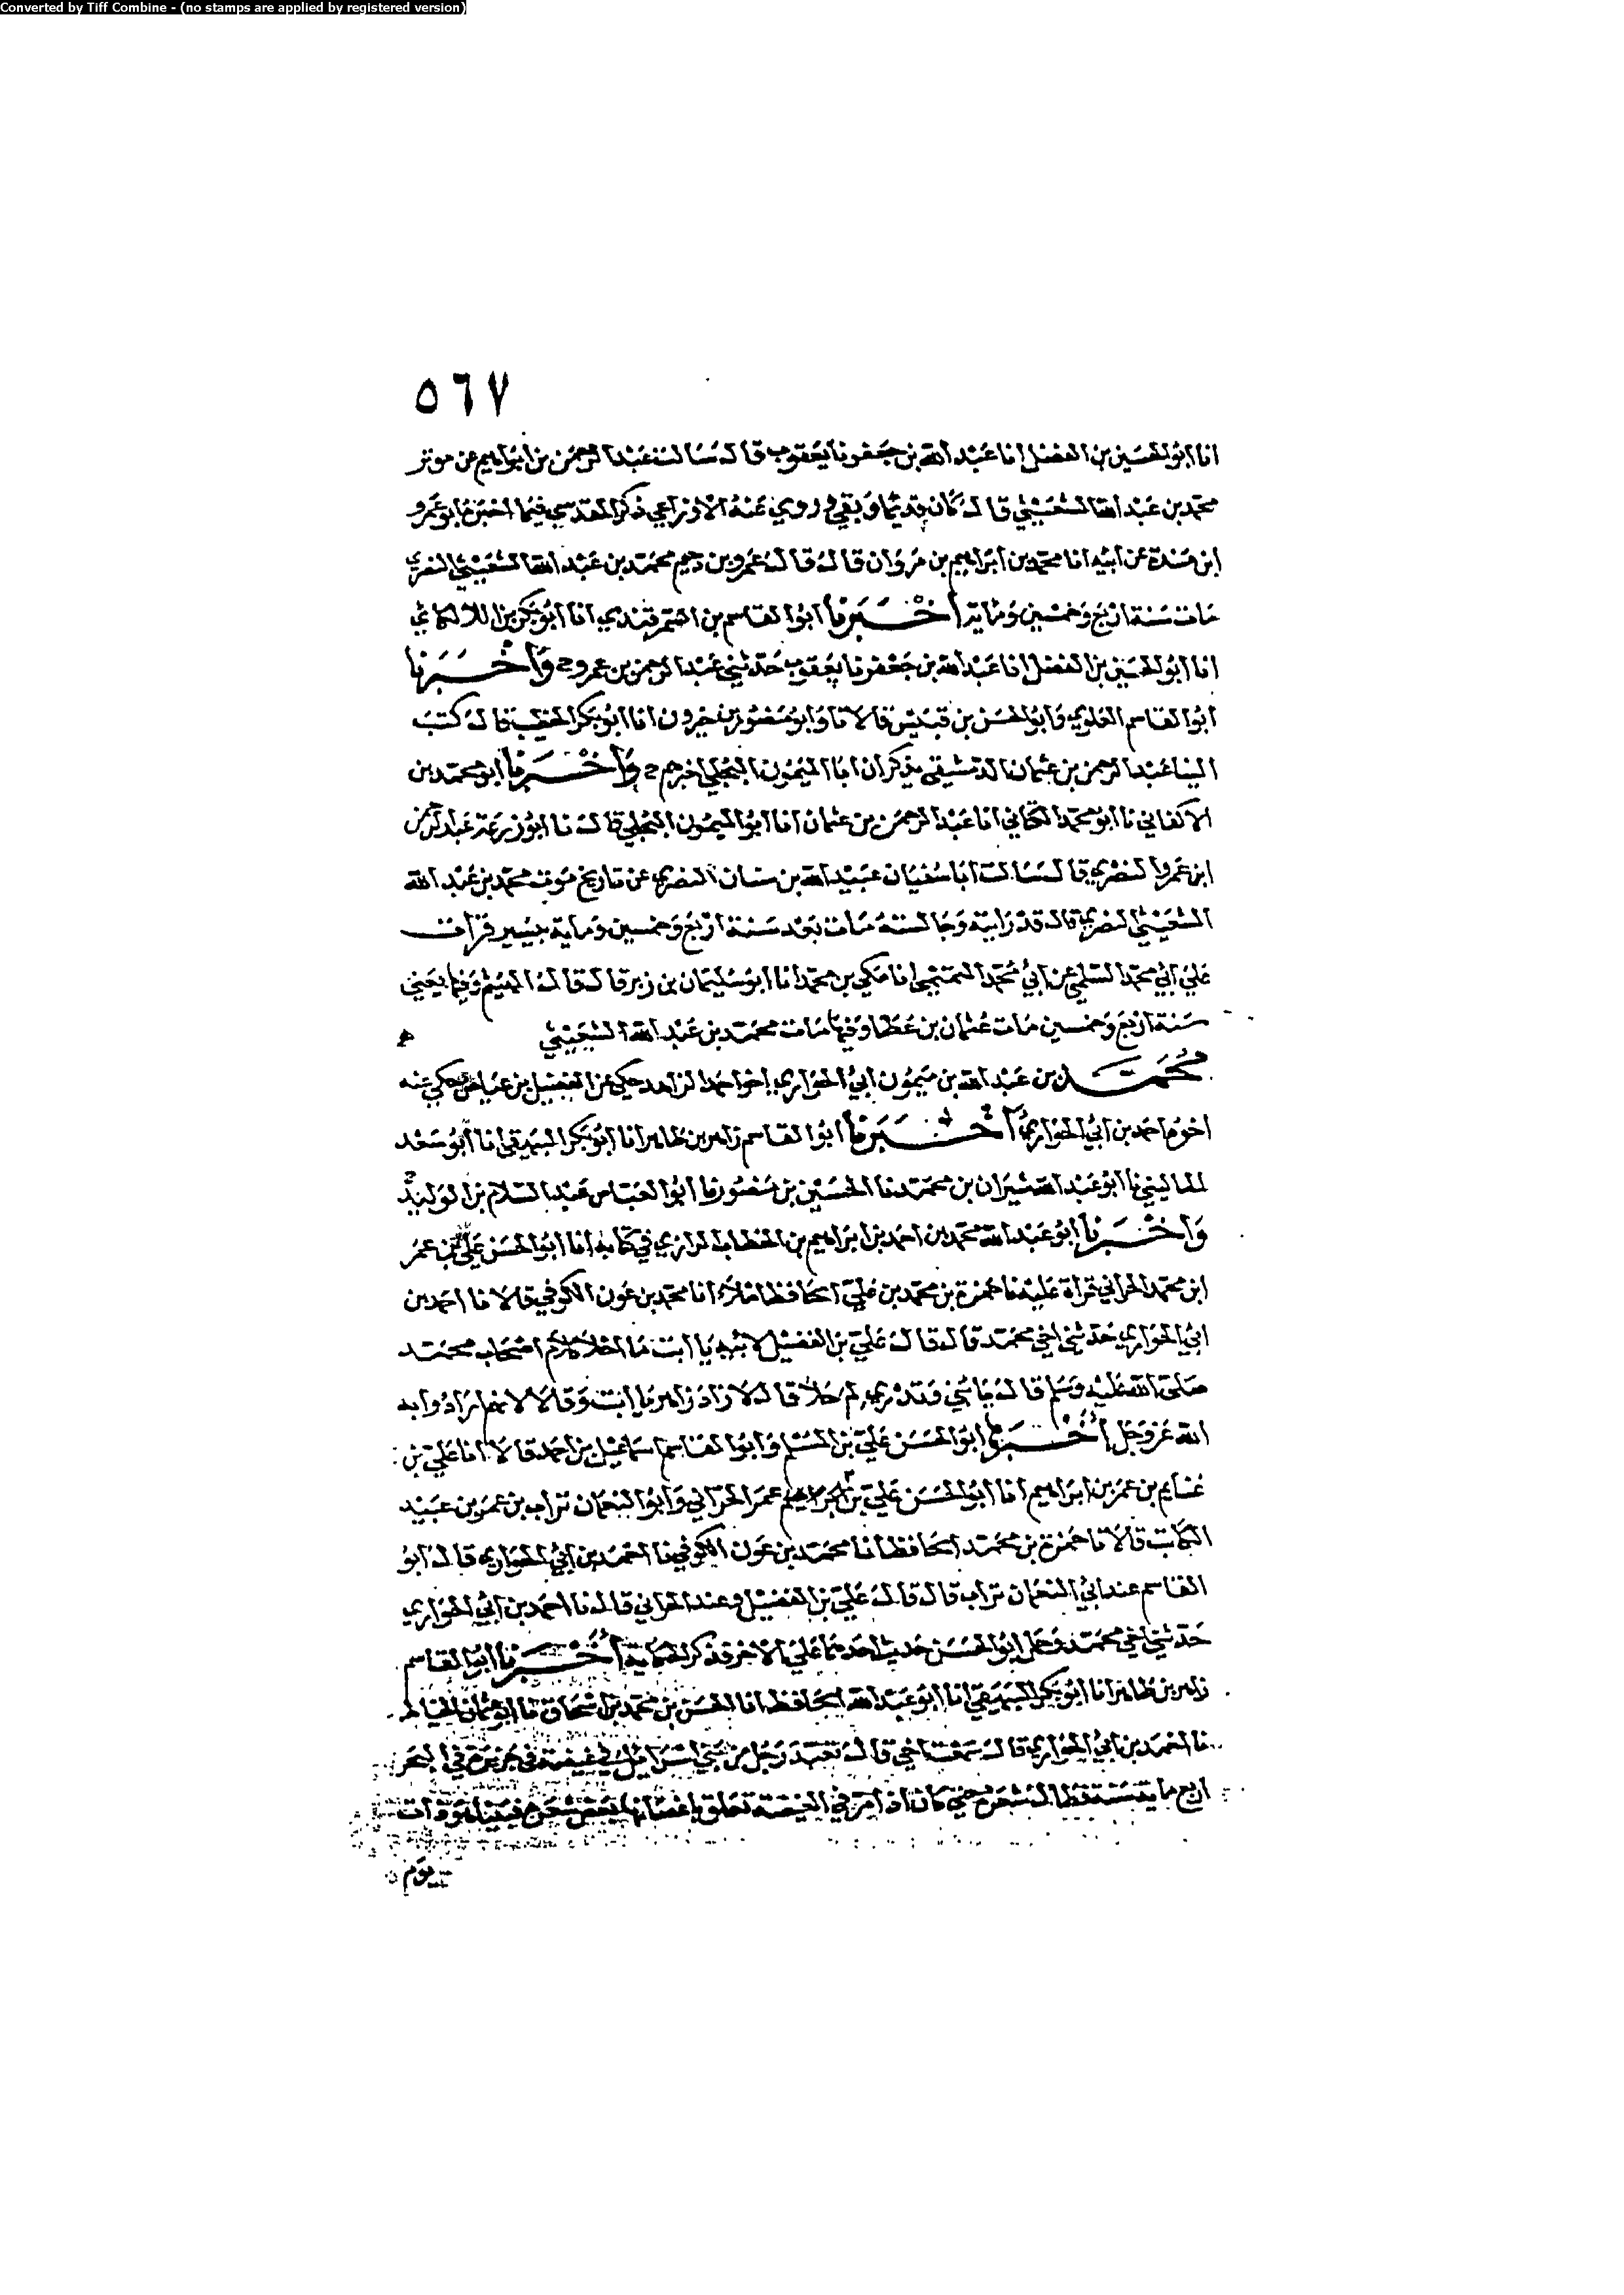 Converted by Tiff Combine - (no stamps are applied by registered version)
٥٦٧
انا ابو الحسين بن الفضل انا عبد الله بن جعفر نا يعقوب قال سالت عبد الرحمن بن ابراهيم عن موت
محمد بن عبد الله الشعيثي قال كان قديما وبقي وروي عنه الاوزاعي ذكر المقدسي فيما اخبرنا ابو عمرو
ابن مندة عن ابيه انا محمد بن ابراهيم بن مروان قال قال عمرو بن دحيم محمد بن عبد الله الشعيثي النصري
مات سنة اربع وخمسين ومائة اخبرنا ابو القاسم بن السمرقندي انا ابو بكر بن اللالكائي
انا ابو الحسين بن الفضل انا عبد الله بن جعفر نا يعقوب حدثني عبد الرحمن بن عمرو ح واخبرنا
ابو القاسم العلوي وابو الحسن بن قبيس قالا نا وابو منصور بن خيرون انا ابو بكر الخطيب قال كتب
الينا عبد الرحمن بن عثمان الدمشقي يذكر ان ابا الميمون البجلي اخبرهم ح واخبرنا ابو محمد بن
الاكفاني نا ابو محمد الكتاني انا عبد الرحمن بن عثمان انا ابو الميمون البجلي قال نا ابو زرعة عبد الرحمن
ابن عمرو النصري قال سالت ابا سفيان عبيد الله بن سنان النصري عن تاريخ موت محمد بن عبد الله
الشعيثي النصري قال قد رايته وجالسته مات بعد سنة اربع وخمسين وماية بيسير قرات
علي ابي محمد السلمي عن ابي محمد التميمي انا مكي بن محمد انا ابو سليمان بن زبر قال قال الهيثم وفيها يعني
سنة اربع وخمسين مات عثمان بن عطا وفيها مات محمد بن عبد الله الشعيثي
محمد بن عبد الله بن ميمون ابي الحواري اخو احمد الزاهد حكى عن الفضيل بن عياض حكي عنه
اخوه احمد بن ابي الحواري اخبرنا ابو القاسم زاهر بن طاهر انا ابو بكر البيهقي انا ابو سعد
الماليني نا ابو عبد الله شيران بن محمد نا الحسين بن منصور نا ابو العباس عبد السلام بن الوليد ح
واخبرنا ابو عبد الله محمد بن احمد بن ابراهيم بن الخطاب الرازي في كتابه انا ابو الحسن علي بن عمر
ابن محمد الحراني قراة عليه نا حمزة بن محمد بن علي الحافظ املاء انا محمد بن عون الكوفي قالا نا احمد بن
ابي الحواري حدثني اخي محمد قال قال علي بن الفضيل لابيه يا ابت ما احلا كلام اصحاب محمد
صلى الله عليه وسلم قال يا بني وتدري لم حلا قال لا زاد زاهر يا ابت وقالا لانهم ارادوا به
الله عز وجل اخبرنا ابو الحسن علي بن المسلم وابو القاسم اسماعيل بن احمد قالا انا علي بن
غنايم بن عمر بن ابراهيم انا ابو الحسن علي بن عمر الحراني وابو النعمان تراب بن عمر بن عبيد
الكاتب قالا نا حمزة بن محمد الحافظ انا محمد بن عون الكوفي نا احمد بن ابي الحواري قال ابو
القاسم عند ابي النعمان تراب قال قال علي بن الفضيل وعند الحراني قال نا احمد بن ابي الحواري
حدثني اخي محمد وحمل ابو الحسن حديث احدهما علي الاخر فذكر الحكاية اخبرنا ابو القاسم
زاهر بن طاهر انا ابو بكر البيهقي انا ابو عبد الله الحافظ انا الحسن بن محمد بن اسحاق نا ابو عثمان الخياط
نا احمد بن ابي الحواري قال سمعت اخي قال تعبد رجل من بني اسرائيل في غيضة في جزيرة في البحر
اربع ماية سنة فطال شعره حتى كان اذا مر في الغيضة تعلق باغصانها بعض شعره فبينا هو ذات
يوم